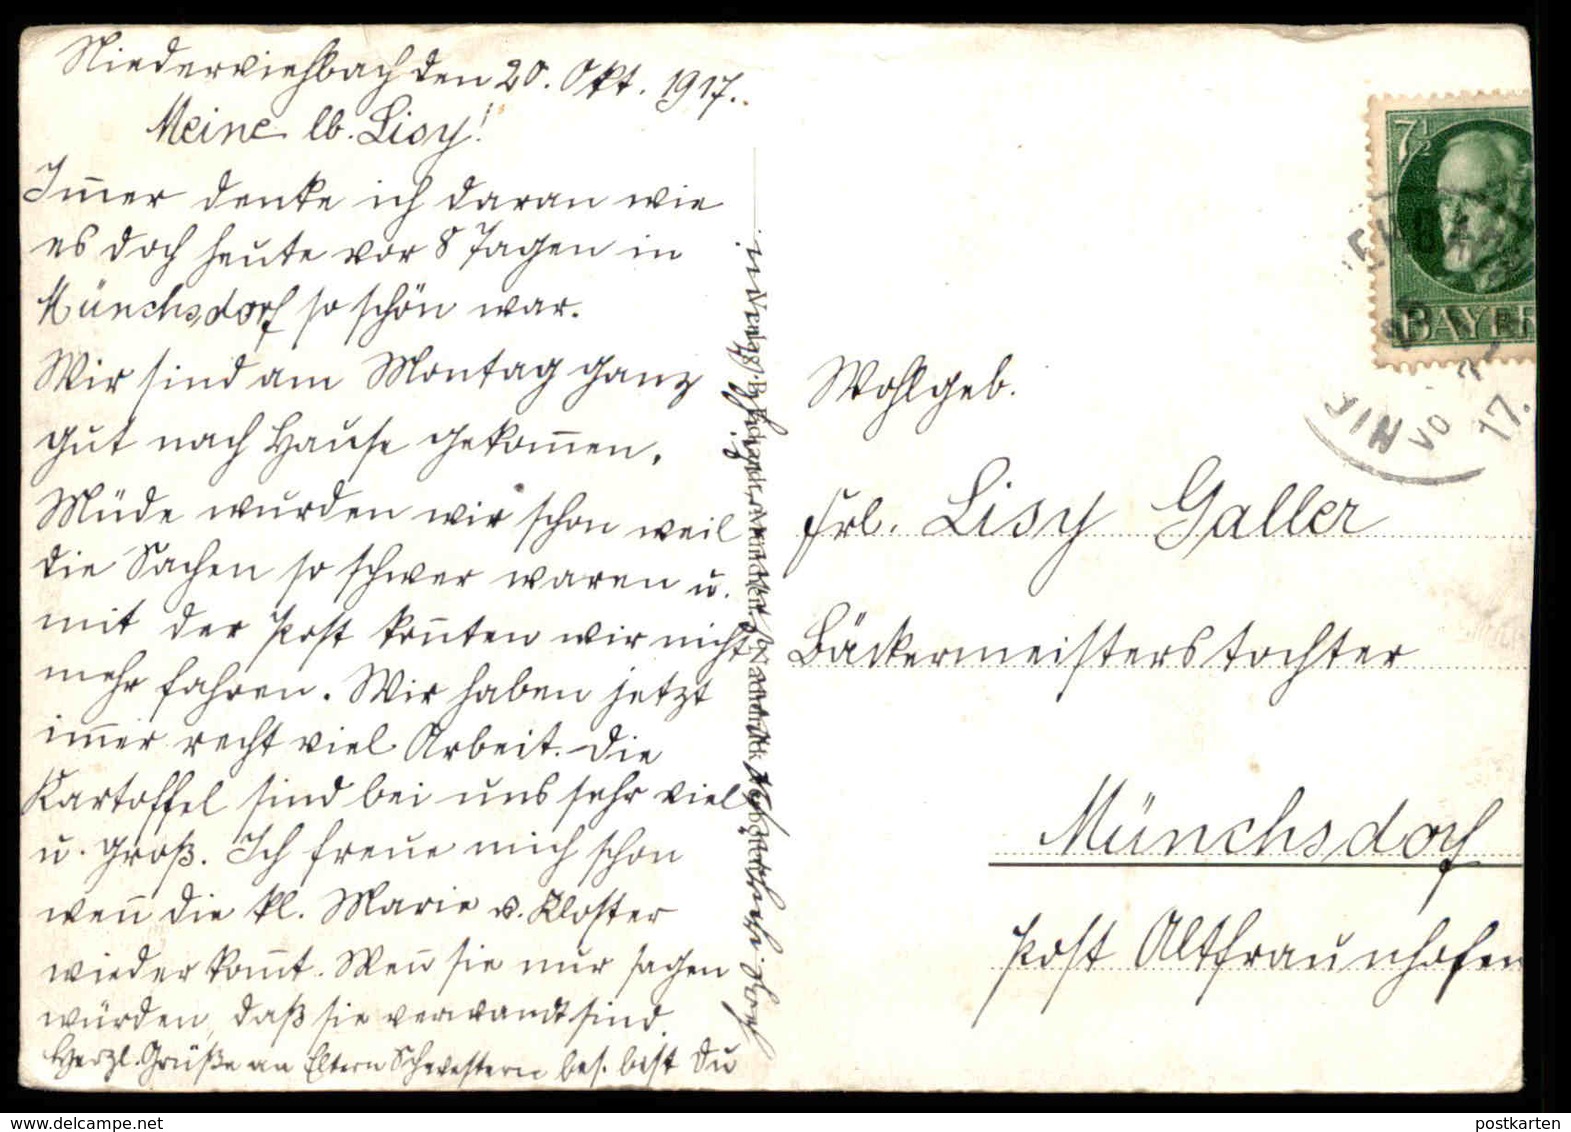 Niederviehbach den 20. Okt. 1917.
Meine lb. Lisy!
Im̅er denke ich daran wie
es doch heute vor 8 Tagen in
Münchsdorf so schön war.
Wir sind am Montag ganz
gut nach Hause gekom̅en.
Müde wurden wir schon weil
die Sachen so schwer waren u.
mit der Post kon̅ten wir nicht
mehr fahren. Wir haben jetzt
im̅er recht viel Arbeit. Die
Kartoffel sind bei uns sehr viel
u. groß. Ich freue mich schon
wen̅ die kl. Marie v. Kloster
wieder kom̅t. Wen̅ sie nur sagen
würden, daß sie verwandt sind.
Herzl. Grüße an Eltern Schwestern bes. bist Du
7½
BAYER
17.
Wohlgeb.
Frl. Lisy Galler
Bäckermeisterstochter
Münchsdorf
Post Altfraunhofen
postkarten